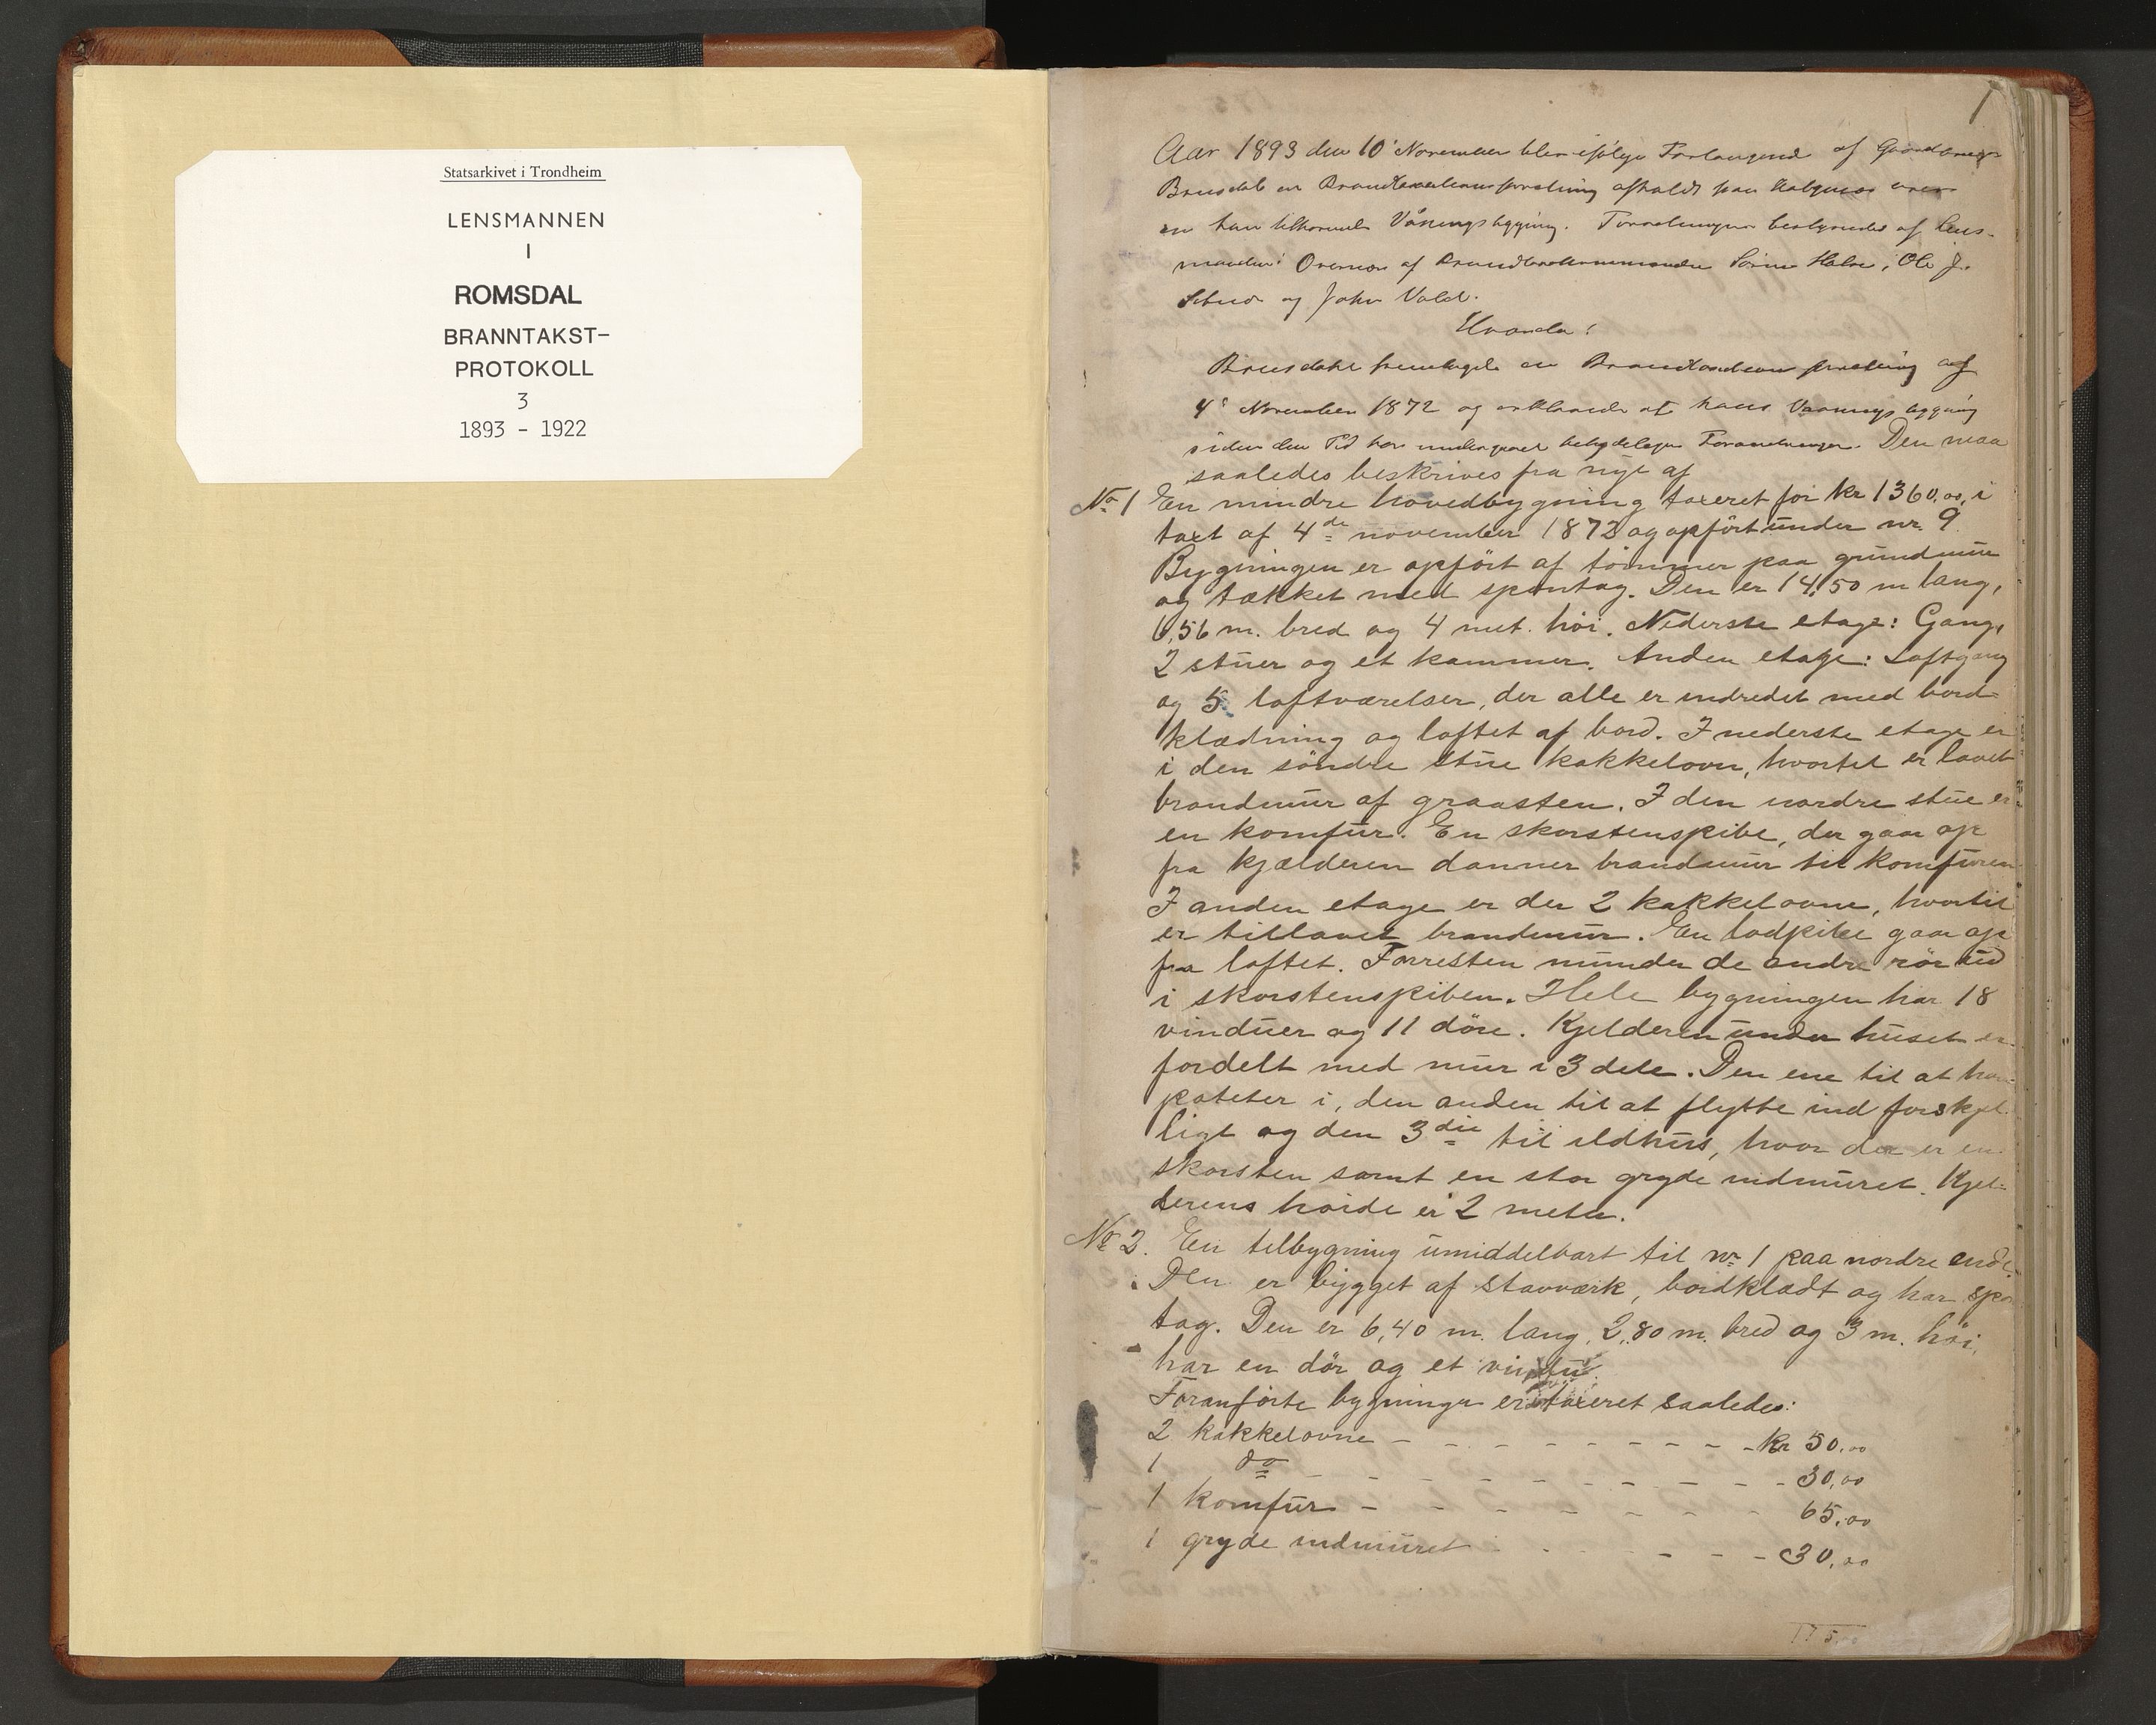 Statsarkivet i Trondheim
LENSMANNEN
I
ROMSDAL
BRANNTAKST-
PROTOKOLL
3
1893 - 1922
1
Aar 1893 den 10' November blev ifölge Forlangende af Gaardbruger
en Brandtaxationsforretning afholdt paa
en ham tilhörende Våningsbygning. Forretningen bestyredes af Lens-
manden: Overvær af Brandtaxtmændene Ole J.
og John Vold.
Hvorda:
fremlagde en Brandtaxationsforretning af
4' November 1872 og erklærede at hans Vaaningsbygning
siden den Tid har undergaaet betydelige Forandringer. Den maa
saaledes beskrives fra nye af
No 1 En mindre hovedbygning taxeret for kr 1360,00, i
taxt af 4de november 1872 og opfört under nr. 9.
Bygningen er opfört af tömmer paa grundmur
og tækket med spontag. Den er 14,50 m lang,
6,56 m. bred og 4 met. höi. Nederste etage: Gang,
2 stuer og et kammer. Anden etage: Loftgang
og 5 loftværelser, der alle er indredet med bord-
klædning og loftet af bord. I nederste etage er
i den söndre stue kakkelovn, hvortil er lavet
brandmur af graasten. I den nordre stue er
en komfur. En skorstenspibe, der gaar op
fra kjælderen danner brandmur til komfuren
I anden etage er der 2 kakkelovne, hvortil
er tillavet brandmur. En lodpibe gaar op
fra loftet. Forresten munder de andre rör ud
i skorstenspiben. Hele bygningen har 18
vinduer og 11 döre. Kjelderen under huset er
fordelt med mur i 3 dele. Den ene til at ha
poteter i, den anden til at flytte ind forskjel-
ligt og den 3die til ildhus, hvor der er en
skorsten samt en stor gryde indmuret. Kjel-
derens höide er 2 meter.
No 2. En tilbygning umiddelbart til no 1 paa nordre ende.
Den er bygget af stavværk, bordklædt og har spon
tag. Den er 6,40 m. lang, 2,80 m. bred og 3 m. höi,
har en dör og et vindu.
Foranförte bygninger er taxeret saaledes:
2 kakkelovne - - - - - - - - - kr 50,00
1 do - - - - - - - - - 30,00
1 komfur - - - - - - - - 65,00
1 gryde indmuret - - - - - - 30,00
175,00